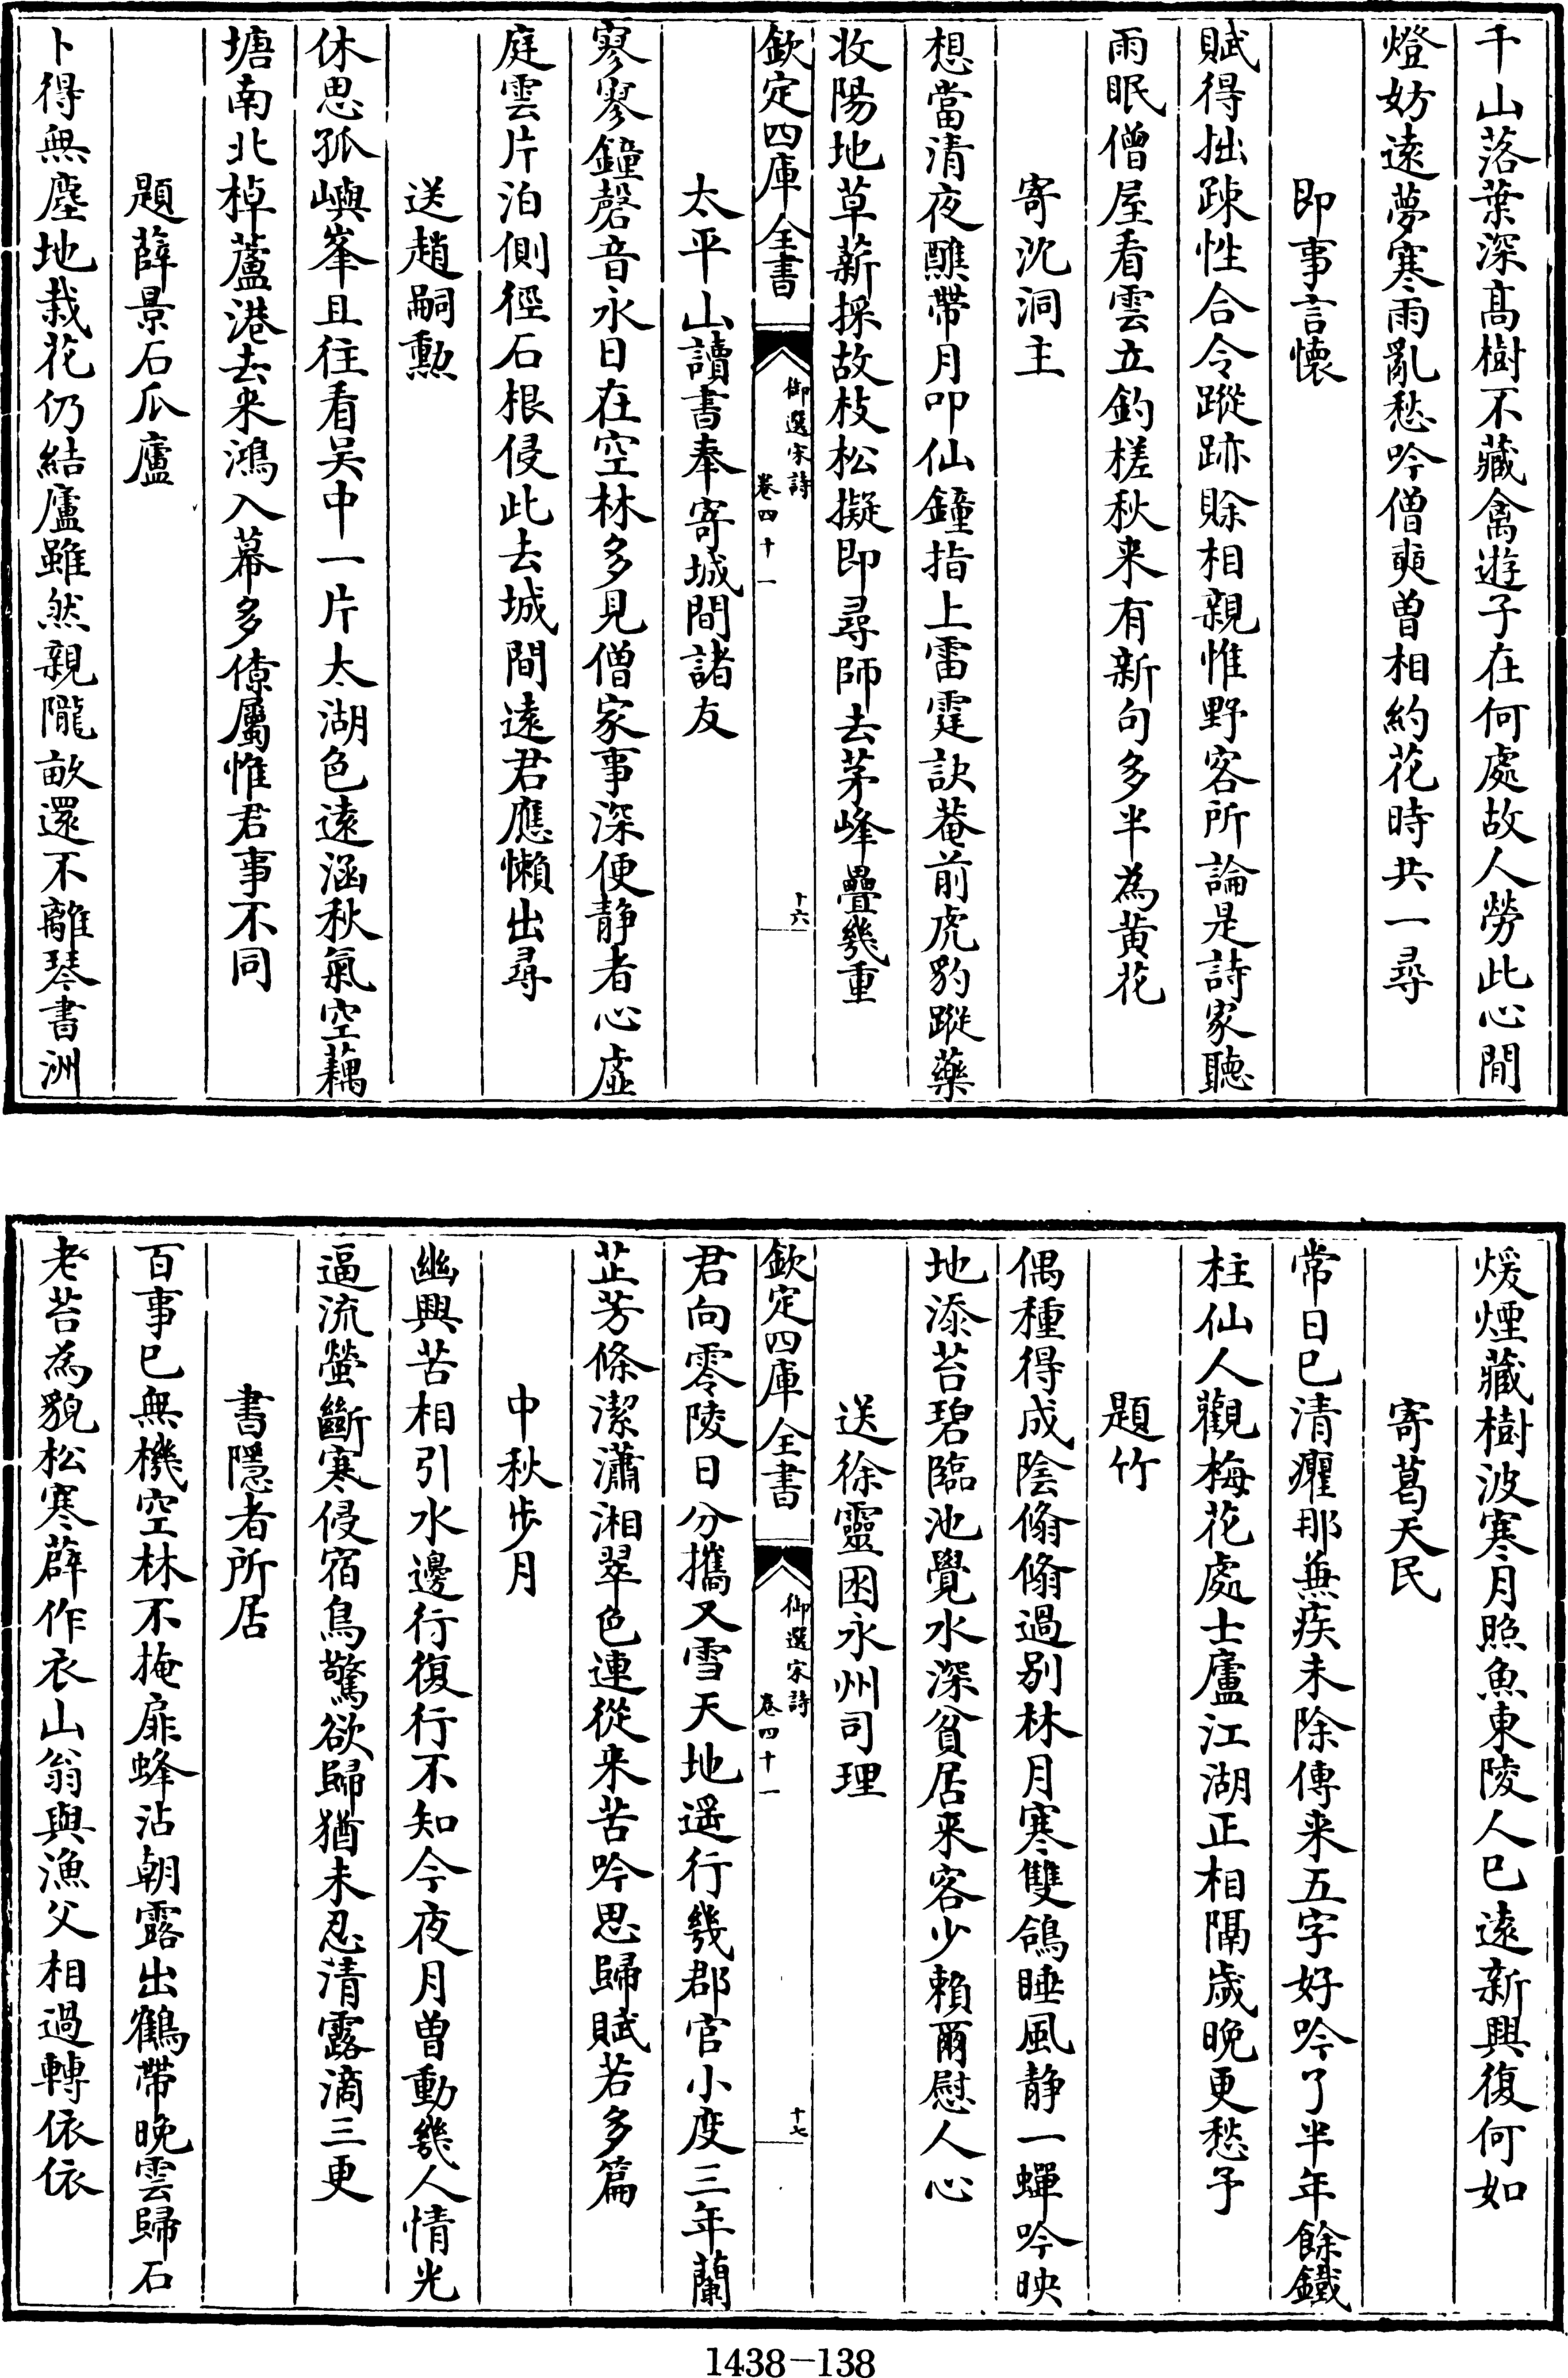 千山落葉深髙樹不藏禽遊子在何處故人勞此心閒
燈妨遠夢寒雨亂愁吟僧奭曽相約花時共一尋
即事言懷
賦得拙踈性合令蹤跡賒相親惟野客所論是詩家聽
雨眠僧屋看雲立釣槎秋来有新句多半為黄花
寄沈洞主
想當清夜醮帶月叩仙鐘指上雷霆訣菴前虎豹蹤藥
收陽地草薪採故枝松擬即尋師去茅峰疊幾重
欽定四庫全書
御選宋詩
卷四十一
十六
太平山讀書奉寄城間諸友
寥寥鐘磬音永日在空林多見僧家事深便静者心虛
庭雲片泊側徑石根侵此去城間遠君應懶出尋
送趙嗣勲
休思孤嶼峯且往看吴中一片太湖色遠涵秋氣空藕
塘南北棹蘆港去来鴻入幕多僚屬惟君事不同
題薛景石瓜廬
卜得無塵地栽花仍結廬雖然親隴畝還不離琴書洲
煖煙藏樹波寒月照魚東陵人已遠新興復何如
寄葛天民
常日已清癯那無疾未除傳来五字好吟了半年餘鐵
柱仙人觀梅花處士廬江湖正相隔歲晚更愁予
題竹
偶種得成陰翛翛過别林月寒雙鴿睡風静一蟬吟映
地添苔碧臨池覺水深貧居来客少賴爾慰人心
送徐靈困永州司理
欽定四庫全書
御選宋詩
卷四十一
十七
君向零陵日分攜又雪天地遥行幾郡官小度三年蘭
芷芳條潔瀟湘翠色連從来苦吟思歸賦若多篇
中秋步月
幽興苦相引水邊行復行不知今夜月曽動幾人情光
逼流螢斷寒侵宿鳥驚欲歸猶未忍清露滴三更
書隱者所居
百事已無機空林不掩扉蜂沾朝露出鶴帶晚雲歸石
老苔為貌松寒薜作衣山翁與漁父相過轉依依
1438-138